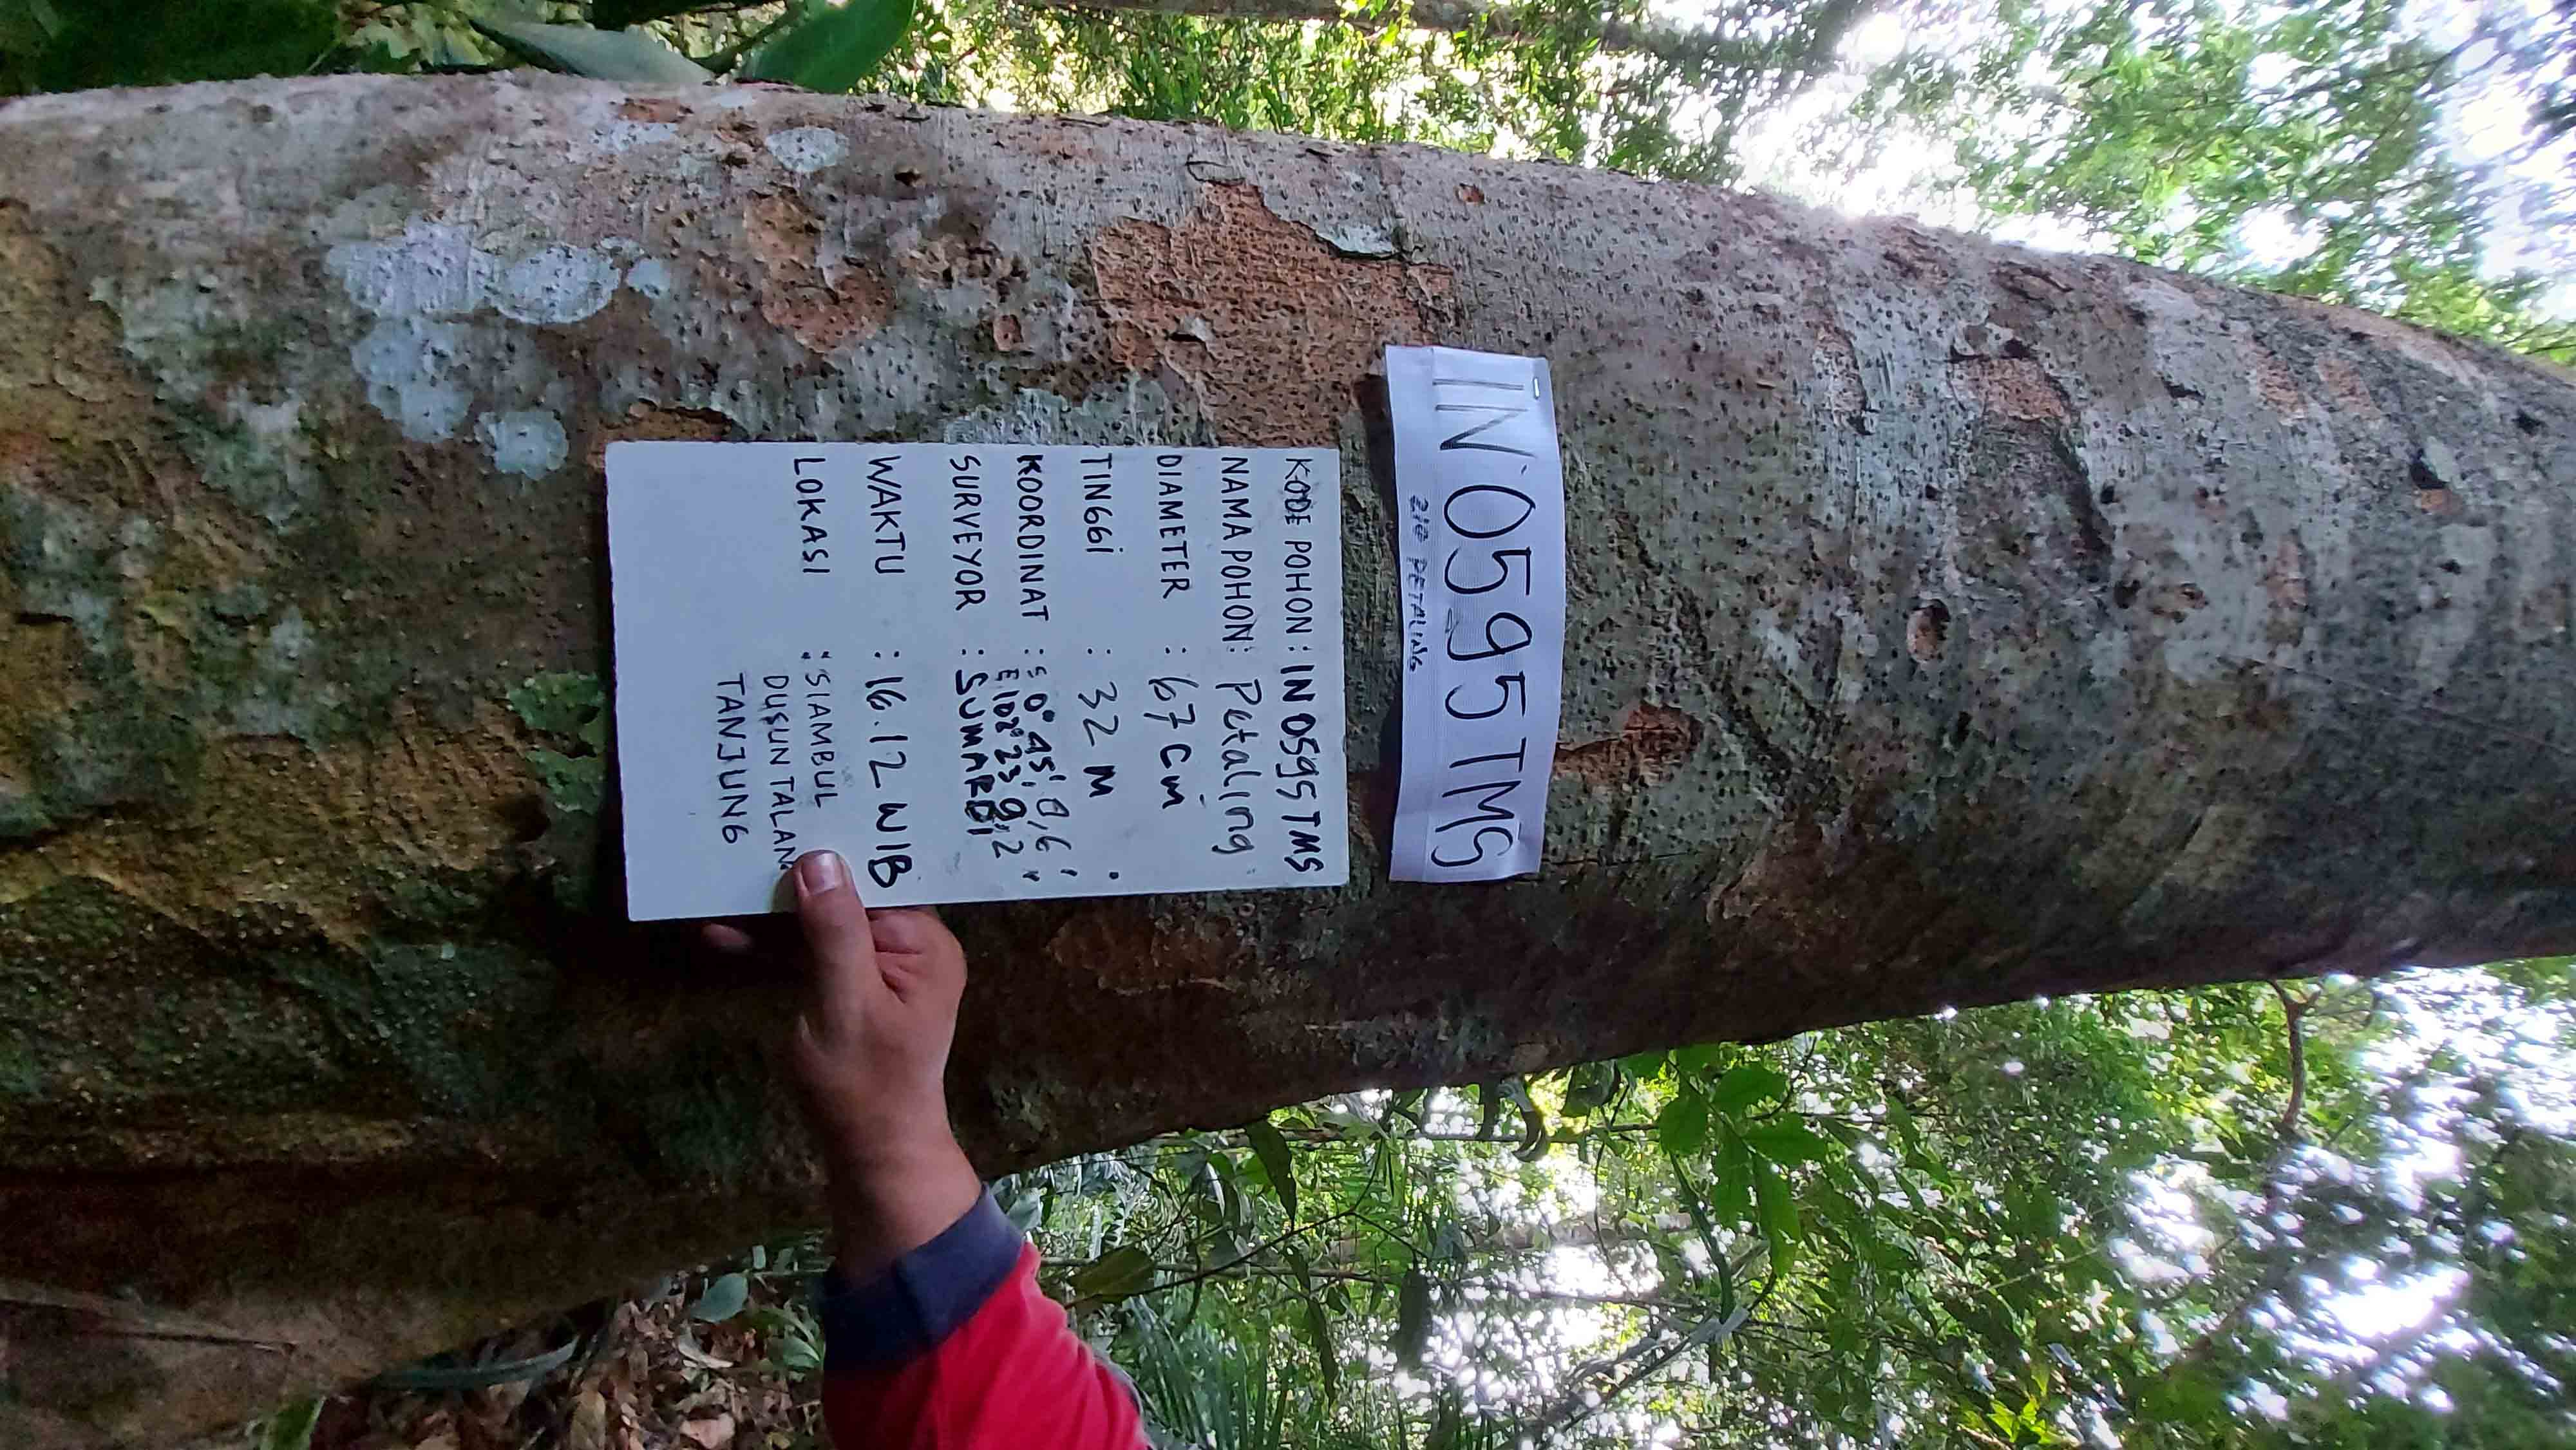 IN 0595 TMS
210 PETALING
KODE POHON : IN 0595 TMS
NAMA POHON : Petaling
DIAMETER : 67 Cm
TINGGI : 32 M
KOORDINAT : S 0° 45' 0,6"
E 102° 23 9,2
SURVEYOR : SUMARDI
WAKTU : 16.12 WIB
LOKASI : SIAMBUL
DUSUN TALAN
TANJUNG